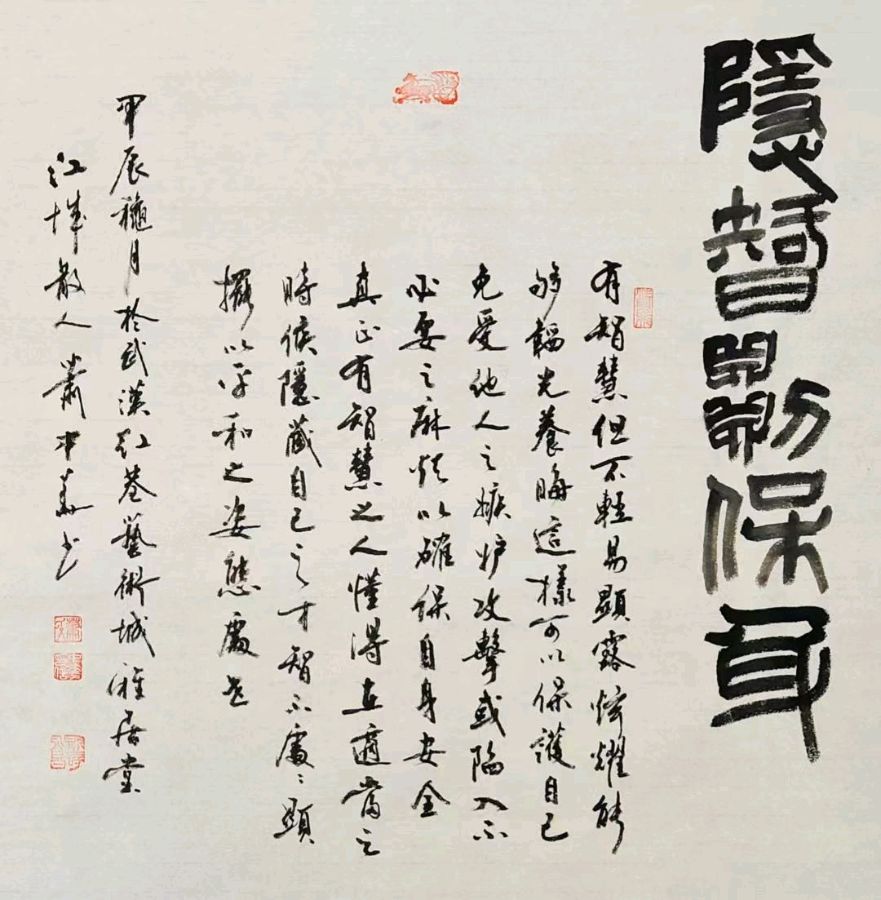 隱智保身
有智慧但不輕易顯露炫耀能
够韜光養晦這樣可以保護自己
免受他人之嫉妒攻擊或陷入不
必要之麻烦以確保自身安全
真正有智慧之人懂得在適當之
時候隱藏自己之才智不處〻顯
擺以平和之姿態處世
甲辰龝月於武漢红巷藝術城雅居堂
江城散人蕭书